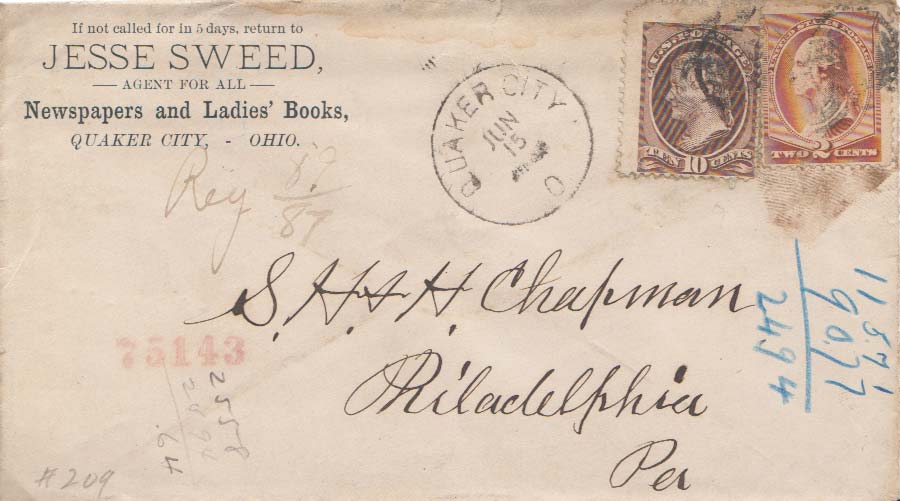 If not called for in 5 days, return to
JESSE SWEED,
AGENT FOR ALL
Newspapers and Ladies' Books,
QUAKER CITY, - OHIO.
QUAKER CITY
JUN
15
O
U.S. POSTAGE
TEN 10 CENTS
TWO 2 CENTS
Reg 89
87
S. H. & H. Chapman
Philadelphia
Pa
75143
1157
9077
2494
2558
64
# 209